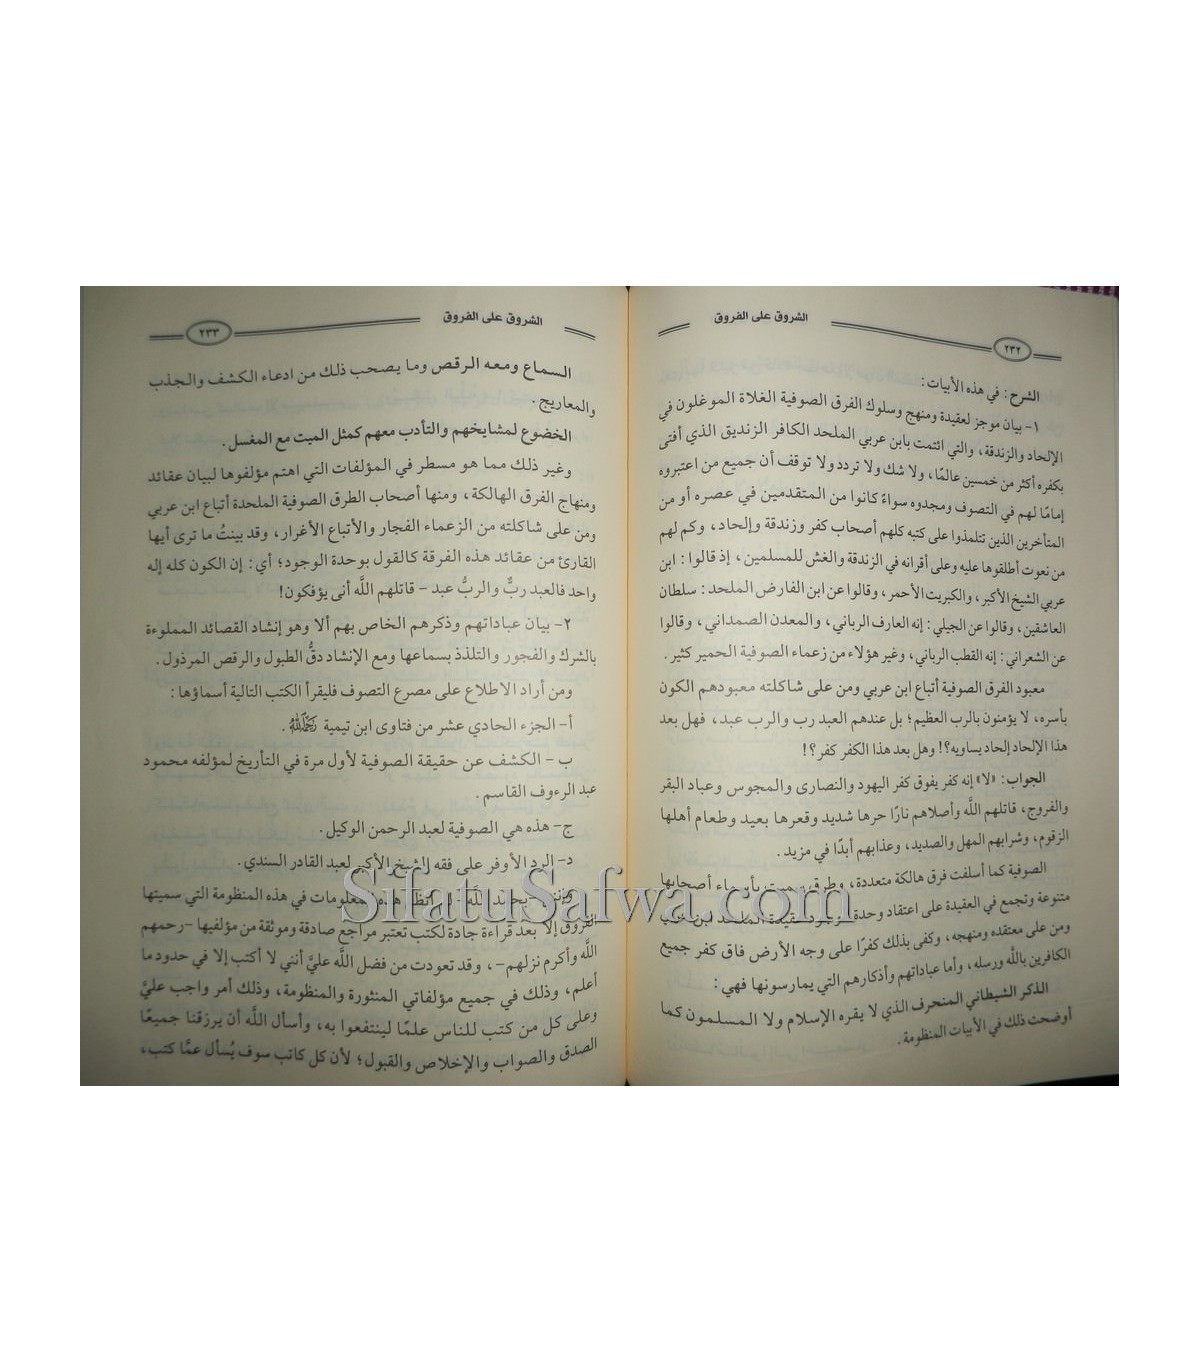 الشروق على الفروق
٢٣٢
الشرح: في هذه الأبيات:
١- بيان موجز لعقيدة ومنهج وسلوك الفرق الصوفية الغلاة الموغلون في
الإلحاد والزندقة، والتي ائتمت بابن عربي الملحد الكافر الزنديق الذي أفتى
بكفره أكثر من خمسين عالمًا، ولا شك ولا تردد ولا توقف أن جميع من اعتبروه
إمامًا لهم في التصوف ومجدوه سواءً كانوا من المتقدمين في عصره أو من
المتأخرين الذين تتلمذوا على كتبه كلهم أصحاب كفر وزندقة وإلحاد، وكم لهم
من نعوت أطلقوها عليه وعلى أقرانه في الزندقة والغش للمسلمين، إذ قالوا: ابن
عربي الشيخ الأكبر، والكبريت الأحمر، وقالوا عن ابن الفارض الملحد: سلطان
العاشقين، وقالوا عن الجيلي: إنه العارف الرباني، والمعدن الصمداني، وقالوا
عن الشعراني: إنه القطب الرباني، وغير هؤلاء من زعماء الصوفية الحمير كثير.
معبود الفرق الصوفية أتباع ابن عربي ومن على شاكلته معبودهم الكون
بأسره، لا يؤمنون بالرب العظيم؛ بل عندهم العبد رب والرب عبد، فهل بعد
هذا الإلحاد إلحاد يساويه؟! وهل بعد هذا الكفر كفر؟!
الجواب: «لا» إنه كفر يفوق كفر اليهود والنصارى والمجوس وعباد البقر
والفروج، قاتلهم اللَّه وأصلاهم نارًا حرها شديد وقعرها بعيد وطعام أهلها
الزقوم، وشرابهم المهل والصديد، وعذابهم أبدًا في مزيد.
الصوفية كما أسلفت فرق هالكة متعددة، وطرق سميت بأسماء أصحابها
متنوعة وتجمع في العقيدة على اعتقاد وحدة الوجود عقيدة الملحد ابن عربي
ومن على معتقده ومنهجه، وكفى بذلك كفرًا على وجه الأرض فاق كفر جميع
الكافرين باللَّه ورسله، وأما عباداتهم وأذكارهم التي يمارسونها فهي:
الذكر الشيطاني المنحرف الذي لا يقره الإسلام ولا المسلمون كما
أوضحت ذلك في الأبيات المنظومة.
الشروق على الفروق
٢٣٣
السماع ومعه الرقص وما يصحب ذلك من ادعاء الكشف والجذب
والمعاريج.
الخضوع لمشايخهم والتأدب معهم كمثل الميت مع المغسل.
وغير ذلك مما هو مسطر في المؤلفات التي اهتم مؤلفوها لبيان عقائد
ومنهاج الفرق الهالكة، ومنها أصحاب الطرق الصوفية الملحدة أتباع ابن عربي
ومن على شاكلته من الزعماء الفجار والأتباع الأغرار، وقد بينتُ ما ترى أيها
القارئ من عقائد هذه الفرقة كالقول بوحدة الوجود؛ أي: إن الكون كله إله
واحد فالعبد ربٌّ والربُّ عبد - قاتلهم اللَّه أنى يؤفكون!
٢- بيان عباداتهم وذكرهم الخاص بهم ألا وهو إنشاد القصائد المملوءة
بالشرك والفجور والتلذذ بسماعها ومع الإنشاد دقُّ الطبول والرقص المرذول.
ومن أراد الاطلاع على مصرع التصوف فليقرأ الكتب التالية أسماؤها:
أ- الجزء الحادي عشر من فتاوى ابن تيمية رَحِمَهُ اللَّهُ.
ب- الكشف عن حقيقة الصوفية لأول مرة في التأريخ لمؤلفه محمود
عبد الرءوف القاسم.
ج- هذه هي الصوفية لعبد الرحمن الوكيل.
د- الرد الأوفر على فقه الشيخ الأكبر لعبد القادر السندي.
وإنني - بحمد اللَّه - لم أنظم هذه المعلومات في هذه المنظومة التي سميتها
الفروق إلا بعد قراءة جادة لكتب تعتبر مراجع صادقة وموثقة من مؤلفيها -رحمهم
اللَّه وأكرم نزلهم-، وقد تعودت من فضل اللَّه عليَّ أنني لا أكتب إلا في حدود ما
أعلم، وذلك في جميع مؤلفاتي المنثورة والمنظومة، وذلك أمر واجب عليَّ
وعلى كل من كتب للناس علمًا لينتفعوا به، وأسأل اللَّه أن يرزقنا جميعًا
الصدق والصواب والإخلاص والقبول؛ لأن كل كاتب سوف يُسأل عمَّا كتب،
SifatuSafwa.com